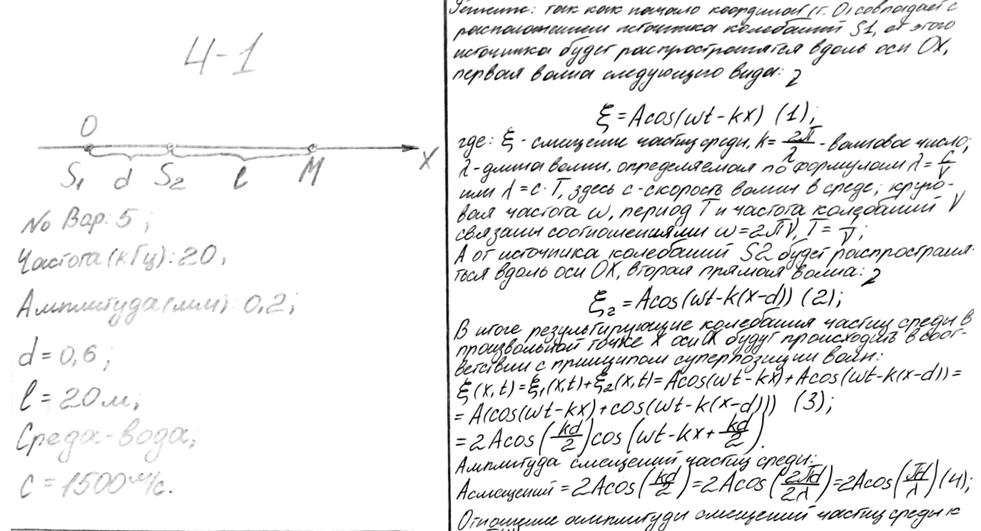 4-1
O
S₁ d S₂ l M X
No Вар: 5;
Частота (кГц): 20,
Амплитуда (мм): 0,2;
d = 0,6;
l = 20 м;
Среда - вода;
c = 1500 м/с.
Решение: так как начало координат (т. O) совпадает с
расположением источника колебаний S1, от этого
источника будет распространятся вдоль оси OX,
первая волна следующего вида:
ξ = Acos(ωt - kx) (1);
где: ξ - смещение частиц среды, k = 2π/λ - волновое число;
λ - длина волны, определяемая по формулам λ = c/ν
или λ = c·T, здесь c - скорость волны в среде; круго-
вая частота ω, период T и частота колебаний ν
связаны соотношениями ω = 2πν, T = 1/ν;
А от источника колебаний S2 будет распространя-
ться вдоль оси OX, вторая прямая волна:
ξ₂ = Acos(ωt - k(x-d)) (2);
В итоге результирующие колебания частиц среды в
произвольной точке X оси X будут происходить в соот-
ветствии с принципом суперпозиции волн:
ξ(x,t) = ξ₁(x,t) + ξ₂(x,t) = Acos(ωt - kx) + Acos(ωt - k(x-d)) =
= A(cos(ωt - kx) + cos(ωt - k(x-d))) (3);
= 2Acos(kd/2)cos(ωt - kx + kd/2).
Амплитуда смещений частиц среды:
Aсмещений = 2Acos(kd/2) = 2Acos(2πd/2λ) = 2Acos(πd/λ) (4);
Отношение амплитуды смещений частиц среды к